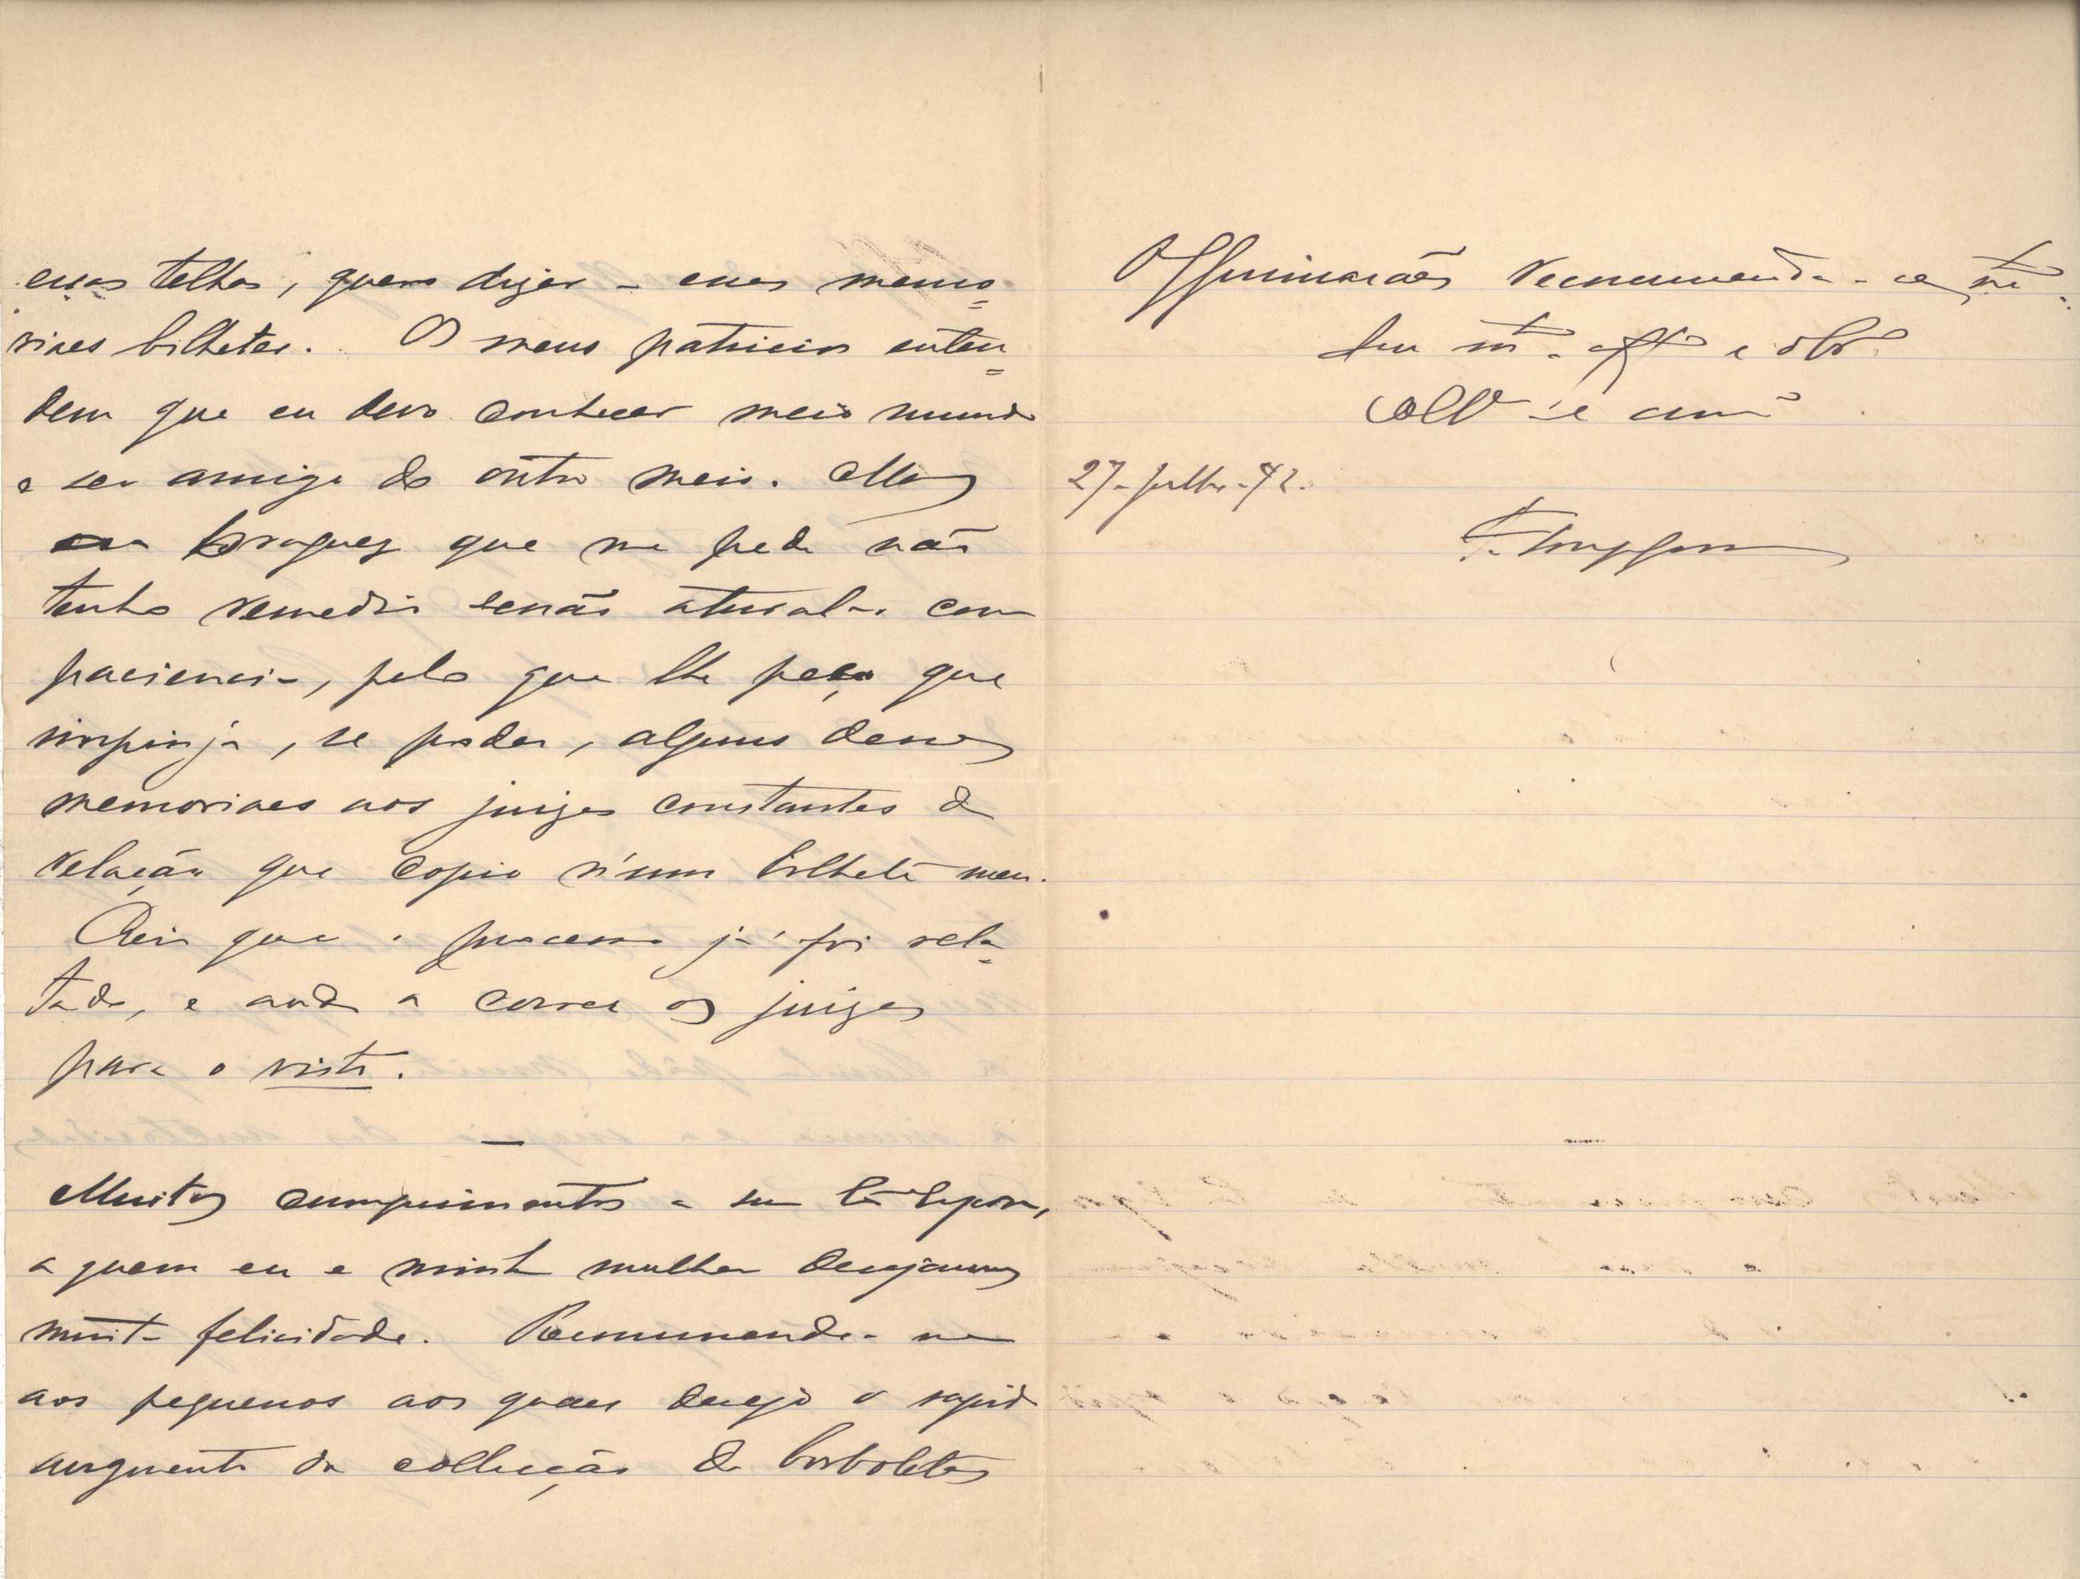 essas telhas, quero dizer – esses memo-
riaes bilhetes. Os meus patricios enten-
dem que eu devo conhecer meio mundo
e ser amigo do outro meio. Mas
a que me pede não
tenho remedio senão atural-o com
paciencia, pelo que lhe peço que
impinja, se poder, alguns desses
memoriaes aos juizes constantes da
relação que copio n'um bilhete meu.
Creio que o processo já foi rela-
tado, e anda a correr os juizes
para o visto.
Muitos cumprimentos a sua Esposa,
a quem eu e minha mulher desejamos
muita felicidade. Recommenda-me
aos pequenos aos quaes desejo o rapido
augmento da collecção de borboletas
O Guimarães recommenda-se mto.
Seu mto. affo e obro
Colla e amo
27-Julho-92.